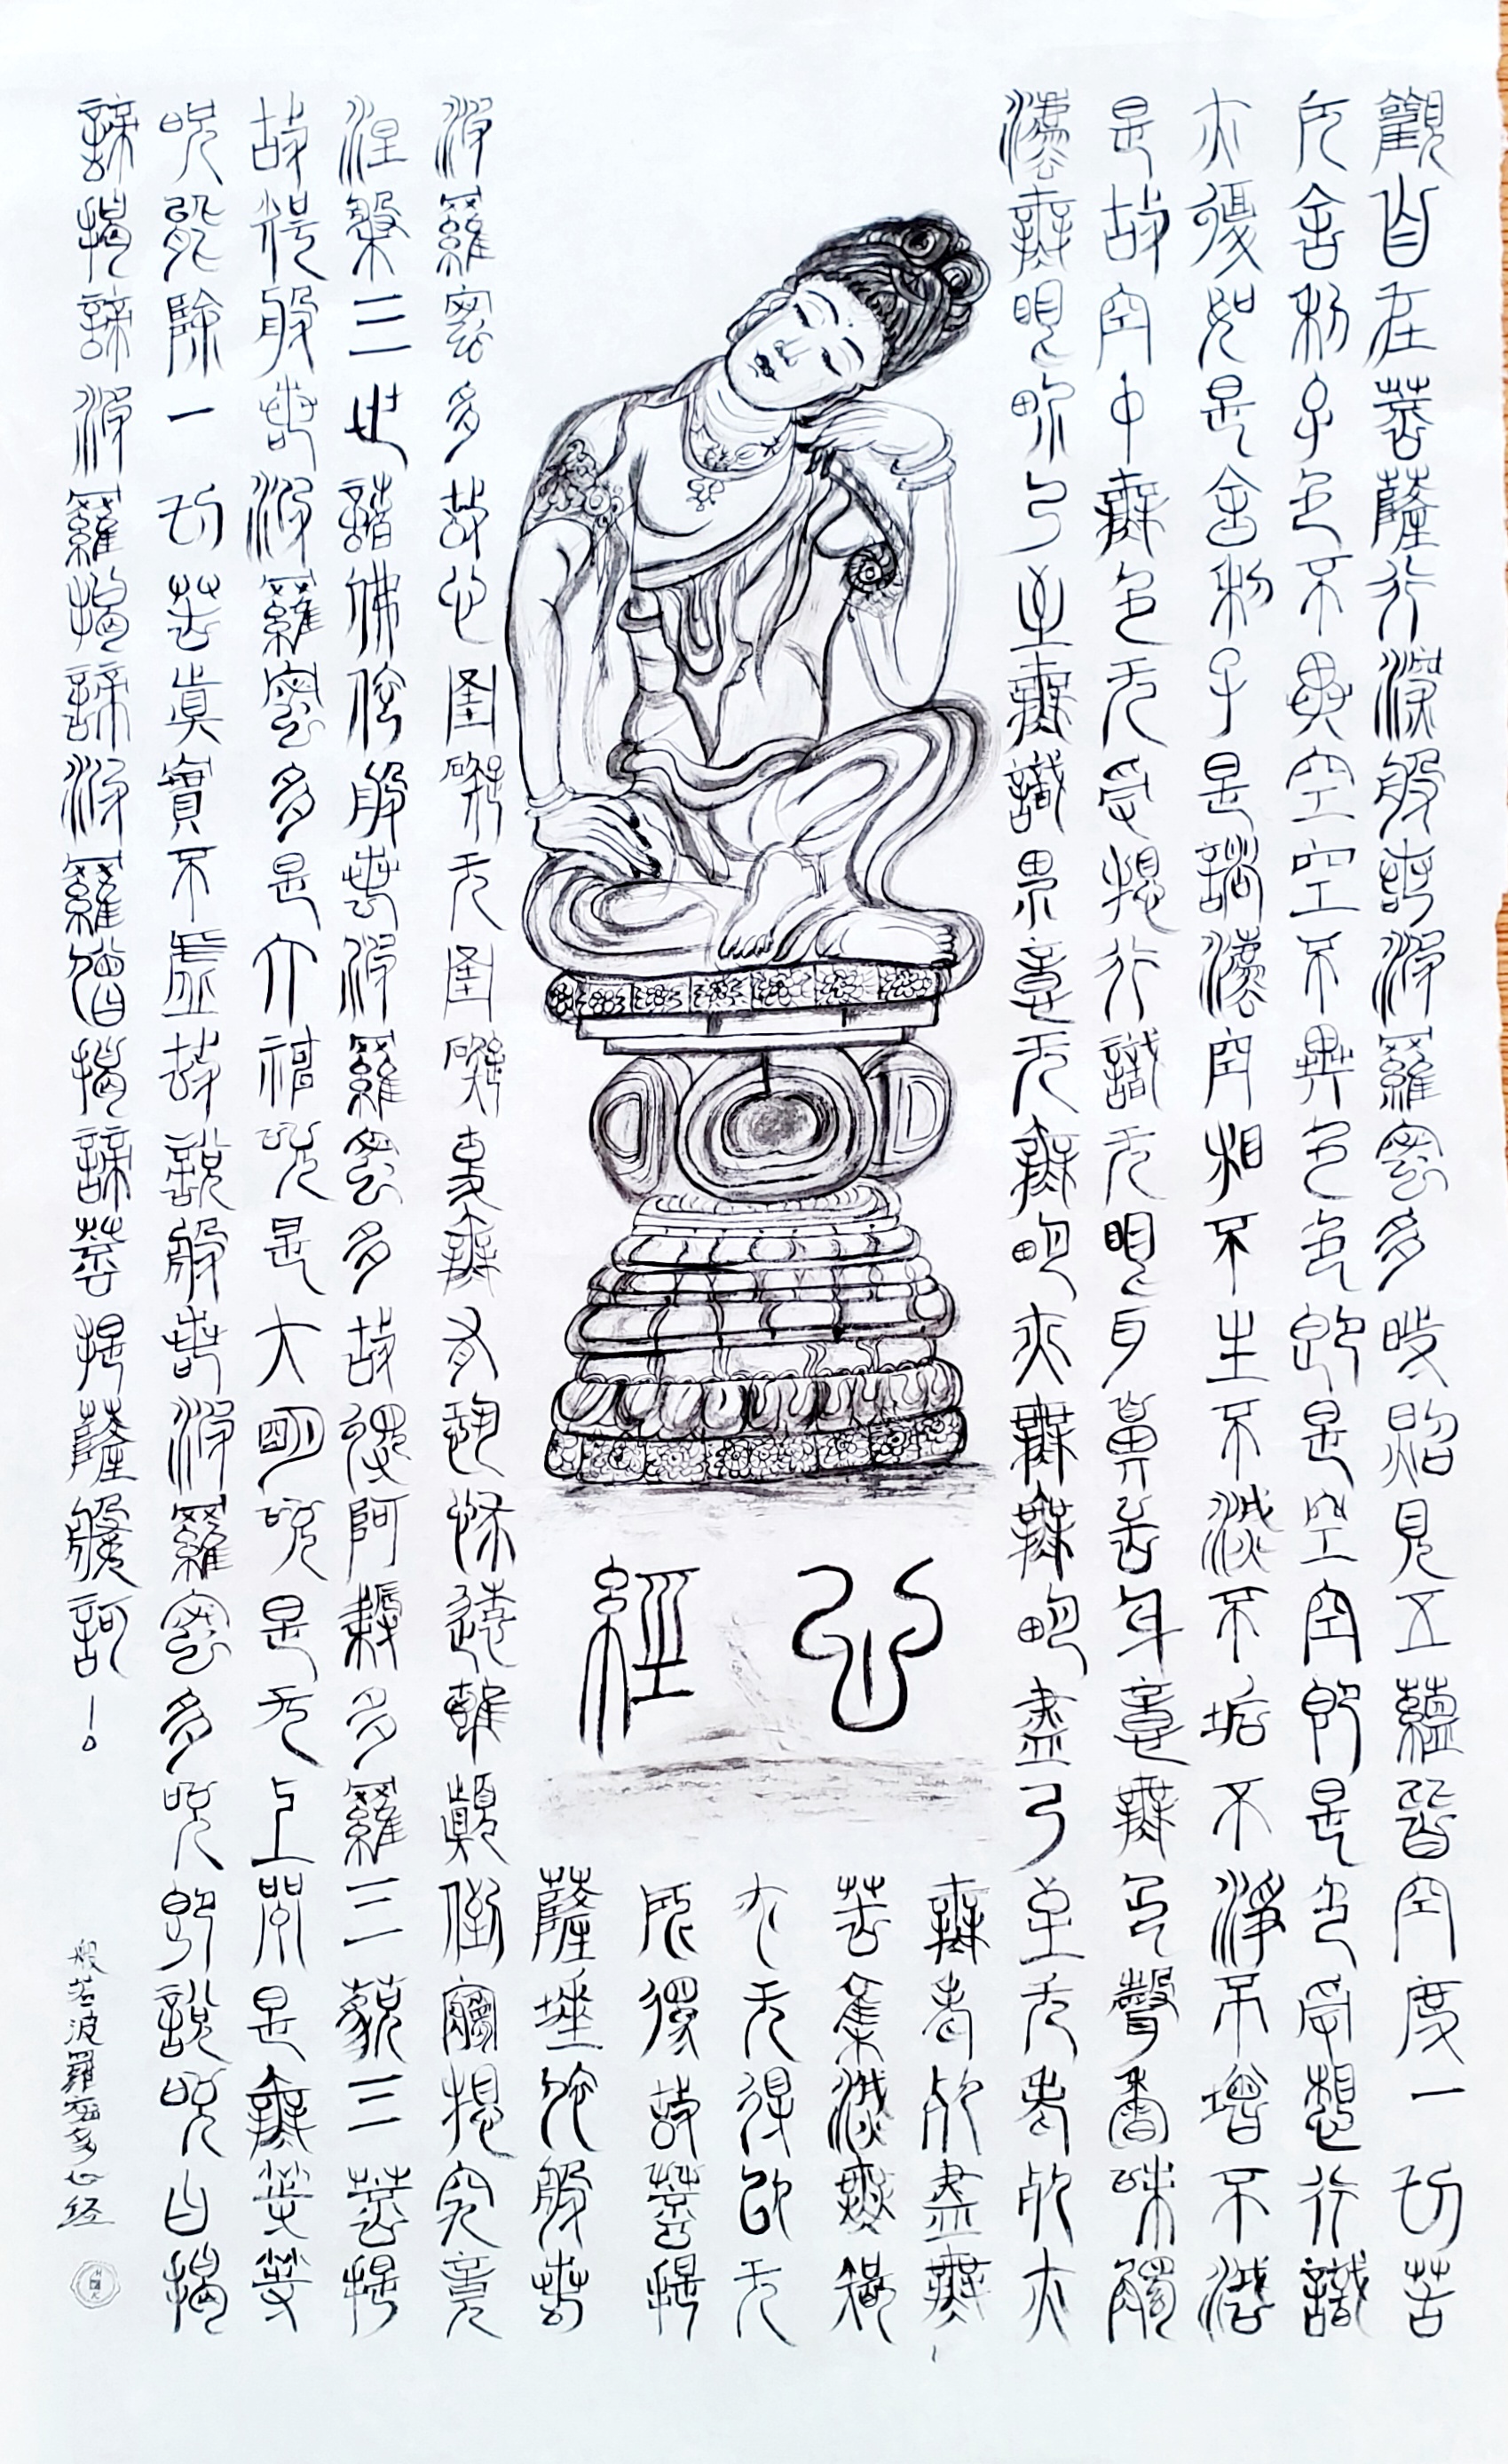 觀自在菩薩行深般若波羅蜜多時照見五蘊皆空度一切苦
厄舍利子色不異空空不異色色即是空空即是色受想行識
亦復如是舍利子是諸法空相不生不滅不垢不淨不增不減
是故空中無色无受想行識无眼耳鼻舌身意無色聲香味觸
法無眼界乃至無識界意无無明亦無無明盡乃至无老死亦
無老死盡無
苦集滅無智
亦无得以无
所得故菩提
薩埵依般若
波羅蜜多故心罣礙无罣礙無有恐怖遠離顛倒夢想究竟
涅槃三世諸佛依般若波羅蜜多故得阿耨多羅三藐三菩提
故得般若波羅蜜多是大神呪是大明呪是无上呪是無等等
呪能除一切苦真實不虛故說般若波羅蜜多呪即說呪曰揭
諦揭諦波羅揭諦波羅僧揭諦菩提薩婆訶。
心經
般若波羅蜜多心经